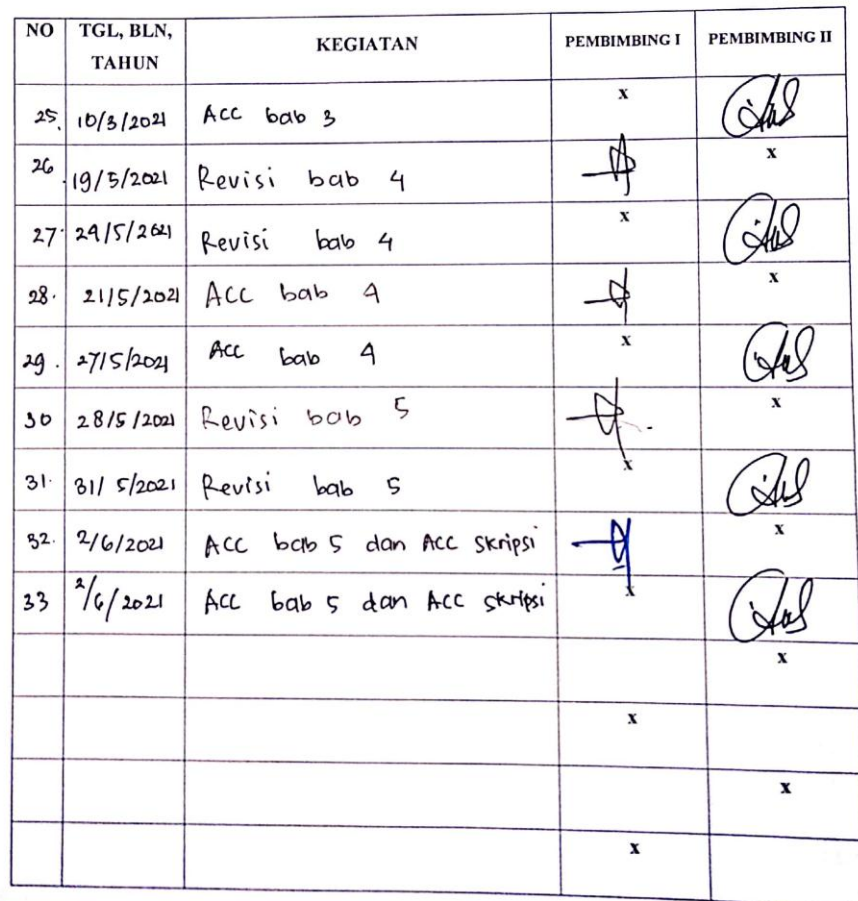 NO TGL, BLN, TAHUN KEGIATAN PEMBIMBING I PEMBIMBING II
25. 10/3/2021 Acc bab 3 x
26 19/5/2021 Revisi bab 4 x
27. 24/5/2021 Revisi bab 4 x
28. 21/5/2021 ACC bab 4 x
29. 27/5/2021 Acc bab 4 x
30 28/5/2021 Revisi bab 5 x
31. 31/5/2021 Revisi bab 5 x
32. 2/6/2021 ACC bab 5 dan ACC skripsi x
33 2/6/2021 ACC bab 5 dan ACC skripsi x
x
x
x
x